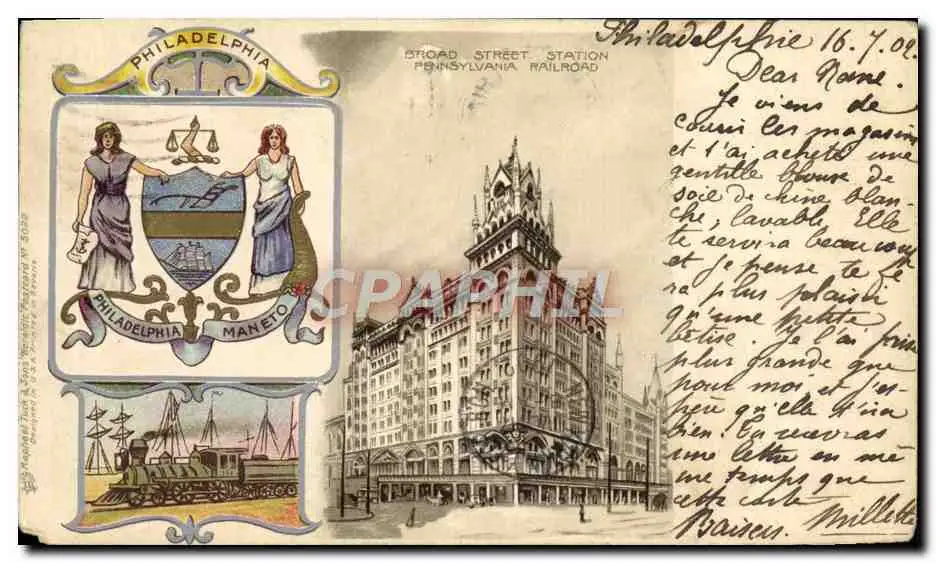 PHILADELPHIA
BROAD STREET STATION
PENNSYLVANIA RAILROAD
PHILADELPHIA MANETO
Raphael Tuck & Sons' Postcard No 5022
Designed in U.S.A. Printed in Bavaria
CPARPHIL
Philadelphie 16.7.02
Dear
Je viens de
courir les magasins
et t'ai acheté une
gentille blouse de
soie de chine blan-
che, lavable. Elle
te servira beaucoup
et je pense te fe
ra plus plaisir
qu'une petite
bêtise. Je l'ai prise
plus grande que
pour moi et j'es-
père qu'elle t'ira
bien. Tu recevras
une lettre en mê
me temps que
cette carte
Baisers. Millette